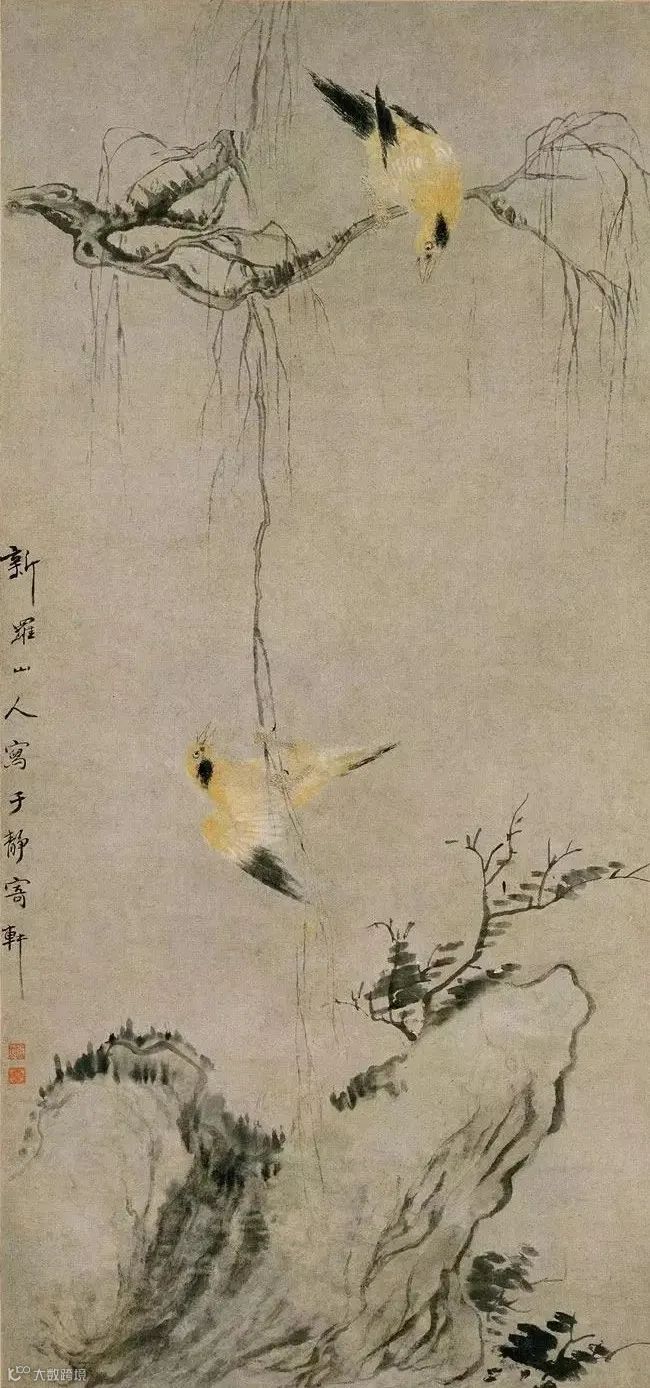 新羅山人寫于靜寄軒
大数跨境